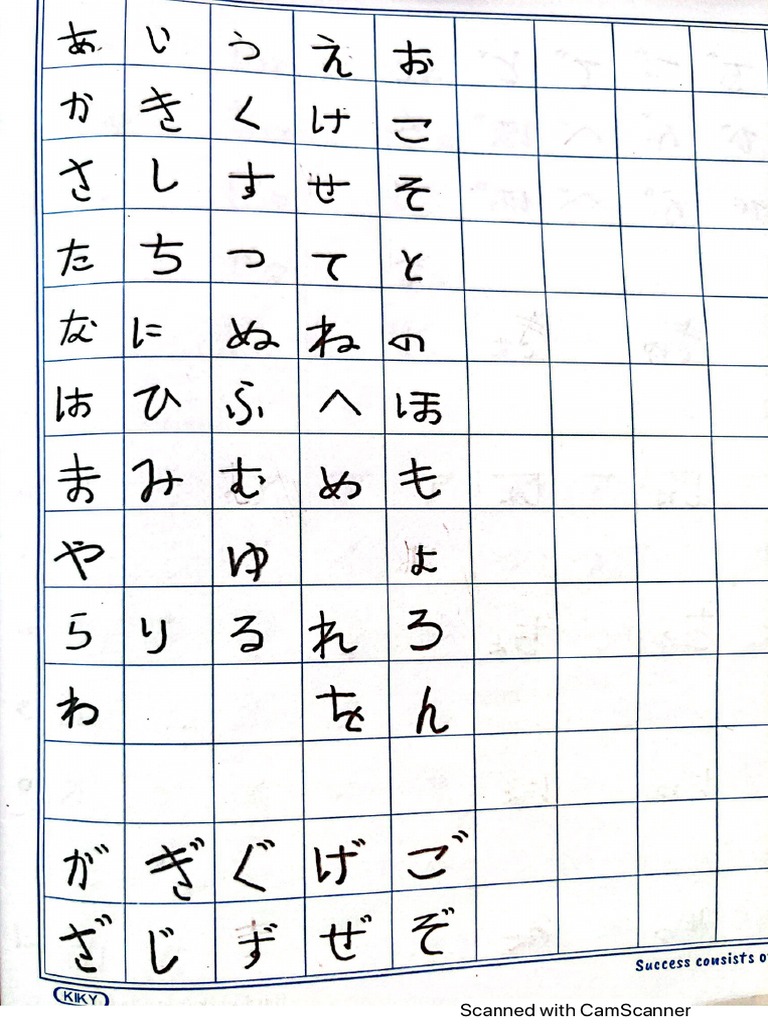 あ い う え お
か き く け こ
さ し す せ そ
た ち つ て と
な に ぬ ね の
は ひ ふ へ ほ
ま み む め も
や ゆ よ
ら り る れ ろ
わ を ん
が ぎ ぐ げ ご
ざ じ ず ぜ ぞ
Success consists o
KIKY
Scanned with CamScanner